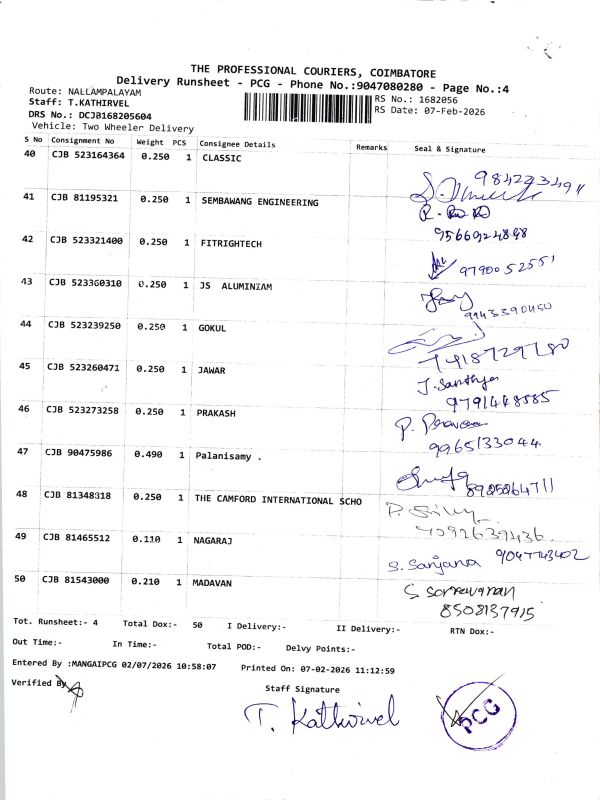 THE PROFESSIONAL COURIERS, COIMBATORE
Delivery Runsheet - PCG - Phone No.:9047080280 - Page No.:4
Route: NALLAMPALAYAM
Staff: T.KATHIRVEL
DRS No.: DCJB168205604
Vehicle: Two Wheeler Delivery
RS No.: 1682056
RS Date: 07-Feb-2026
S No Consignment No Weight PCS Consignee Details Remarks Seal & Signature
40 CJB 523164364 0.250 1 CLASSIC
41 CJB 81195321 0.250 1 SEMBAWANG ENGINEERING
9566924898
42 CJB 523321400 0.250 1 FITRIGHTECH
9790052551
43 CJB 523360310 0.250 1 JS ALUMINIAM
9943390450
44 CJB 523239250 0.250 1 GOKUL
7418729780
45 CJB 523260471 0.250 1 JAWAR
J. Santhya
9791448585
46 CJB 523273258 0.250 1 PRAKASH
9965133044
47 CJB 90475986 0.490 1 Palanisamy .
8925264711
48 CJB 81348318 0.250 1 THE CAMFORD INTERNATIONAL SCHO
9092639436.
49 CJB 81465512 0.110 1 NAGARAJ
S. Sanjana 9047743402
50 CJB 81543000 0.210 1 MADAVAN
S Sorrawanan
8508137915
Tot. Runsheet:- 4 Total Dox:- 50 I Delivery:- II Delivery:- RTN Dox:-
Out Time:- In Time:- Total POD:- Delvy Points:-
Entered By :MANGAIPCG 02/07/2026 10:58:07 Printed On: 07-02-2026 11:12:59
Verified By
Staff Signature
T. Kathirvel
PCG